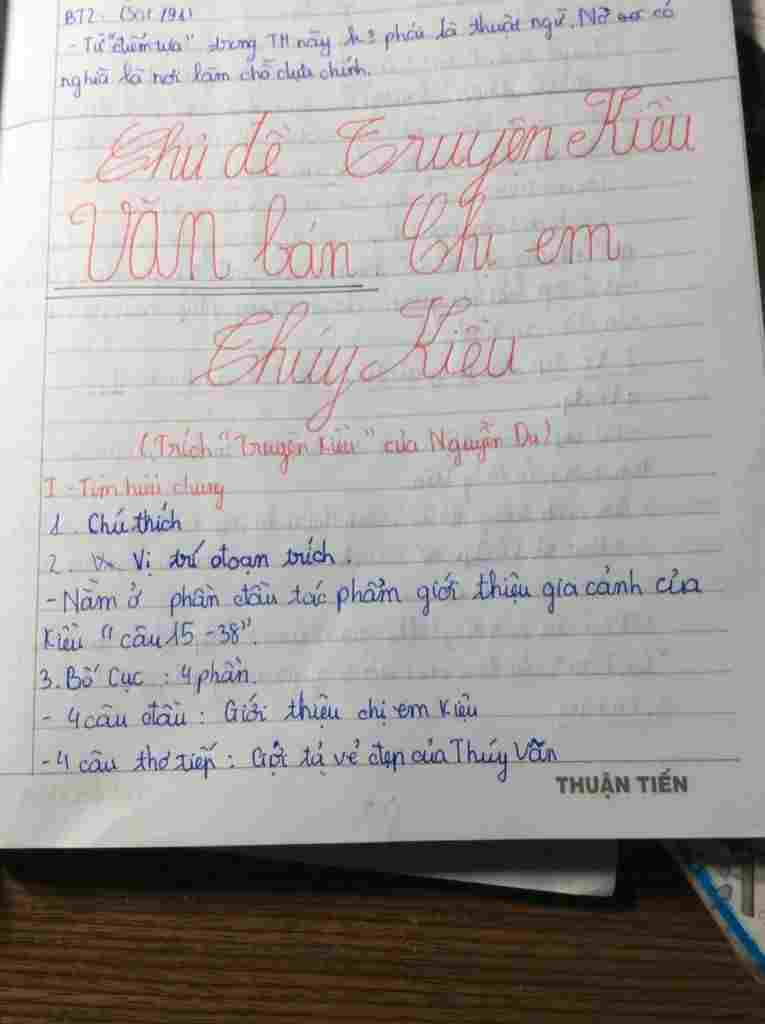 BT2. (SGK 191)
- Từ "điểm tựa" trong TH này k? phải là thuật ngữ. Nó có
nghĩa là nơi làm chỗ dựa chính.
Chủ đề Truyện Kiều
Văn bản Chị em
Thúy Kiều
(Trích "Truyện Kiều" của Nguyễn Du)
I - Tìm hiểu chung
1. Chú thích
2. Vị trí đoạn trích.
- Nằm ở phần đầu tác phẩm giới thiệu gia cảnh của
Kiều "câu 15 - 38".
3. Bố Cục : 4 phần.
- 4 câu đầu : Giới thiệu chị em Kiều
- 4 câu thơ tiếp : Gợi tả vẻ đẹp của Thúy Vân
THUẬN TIẾN